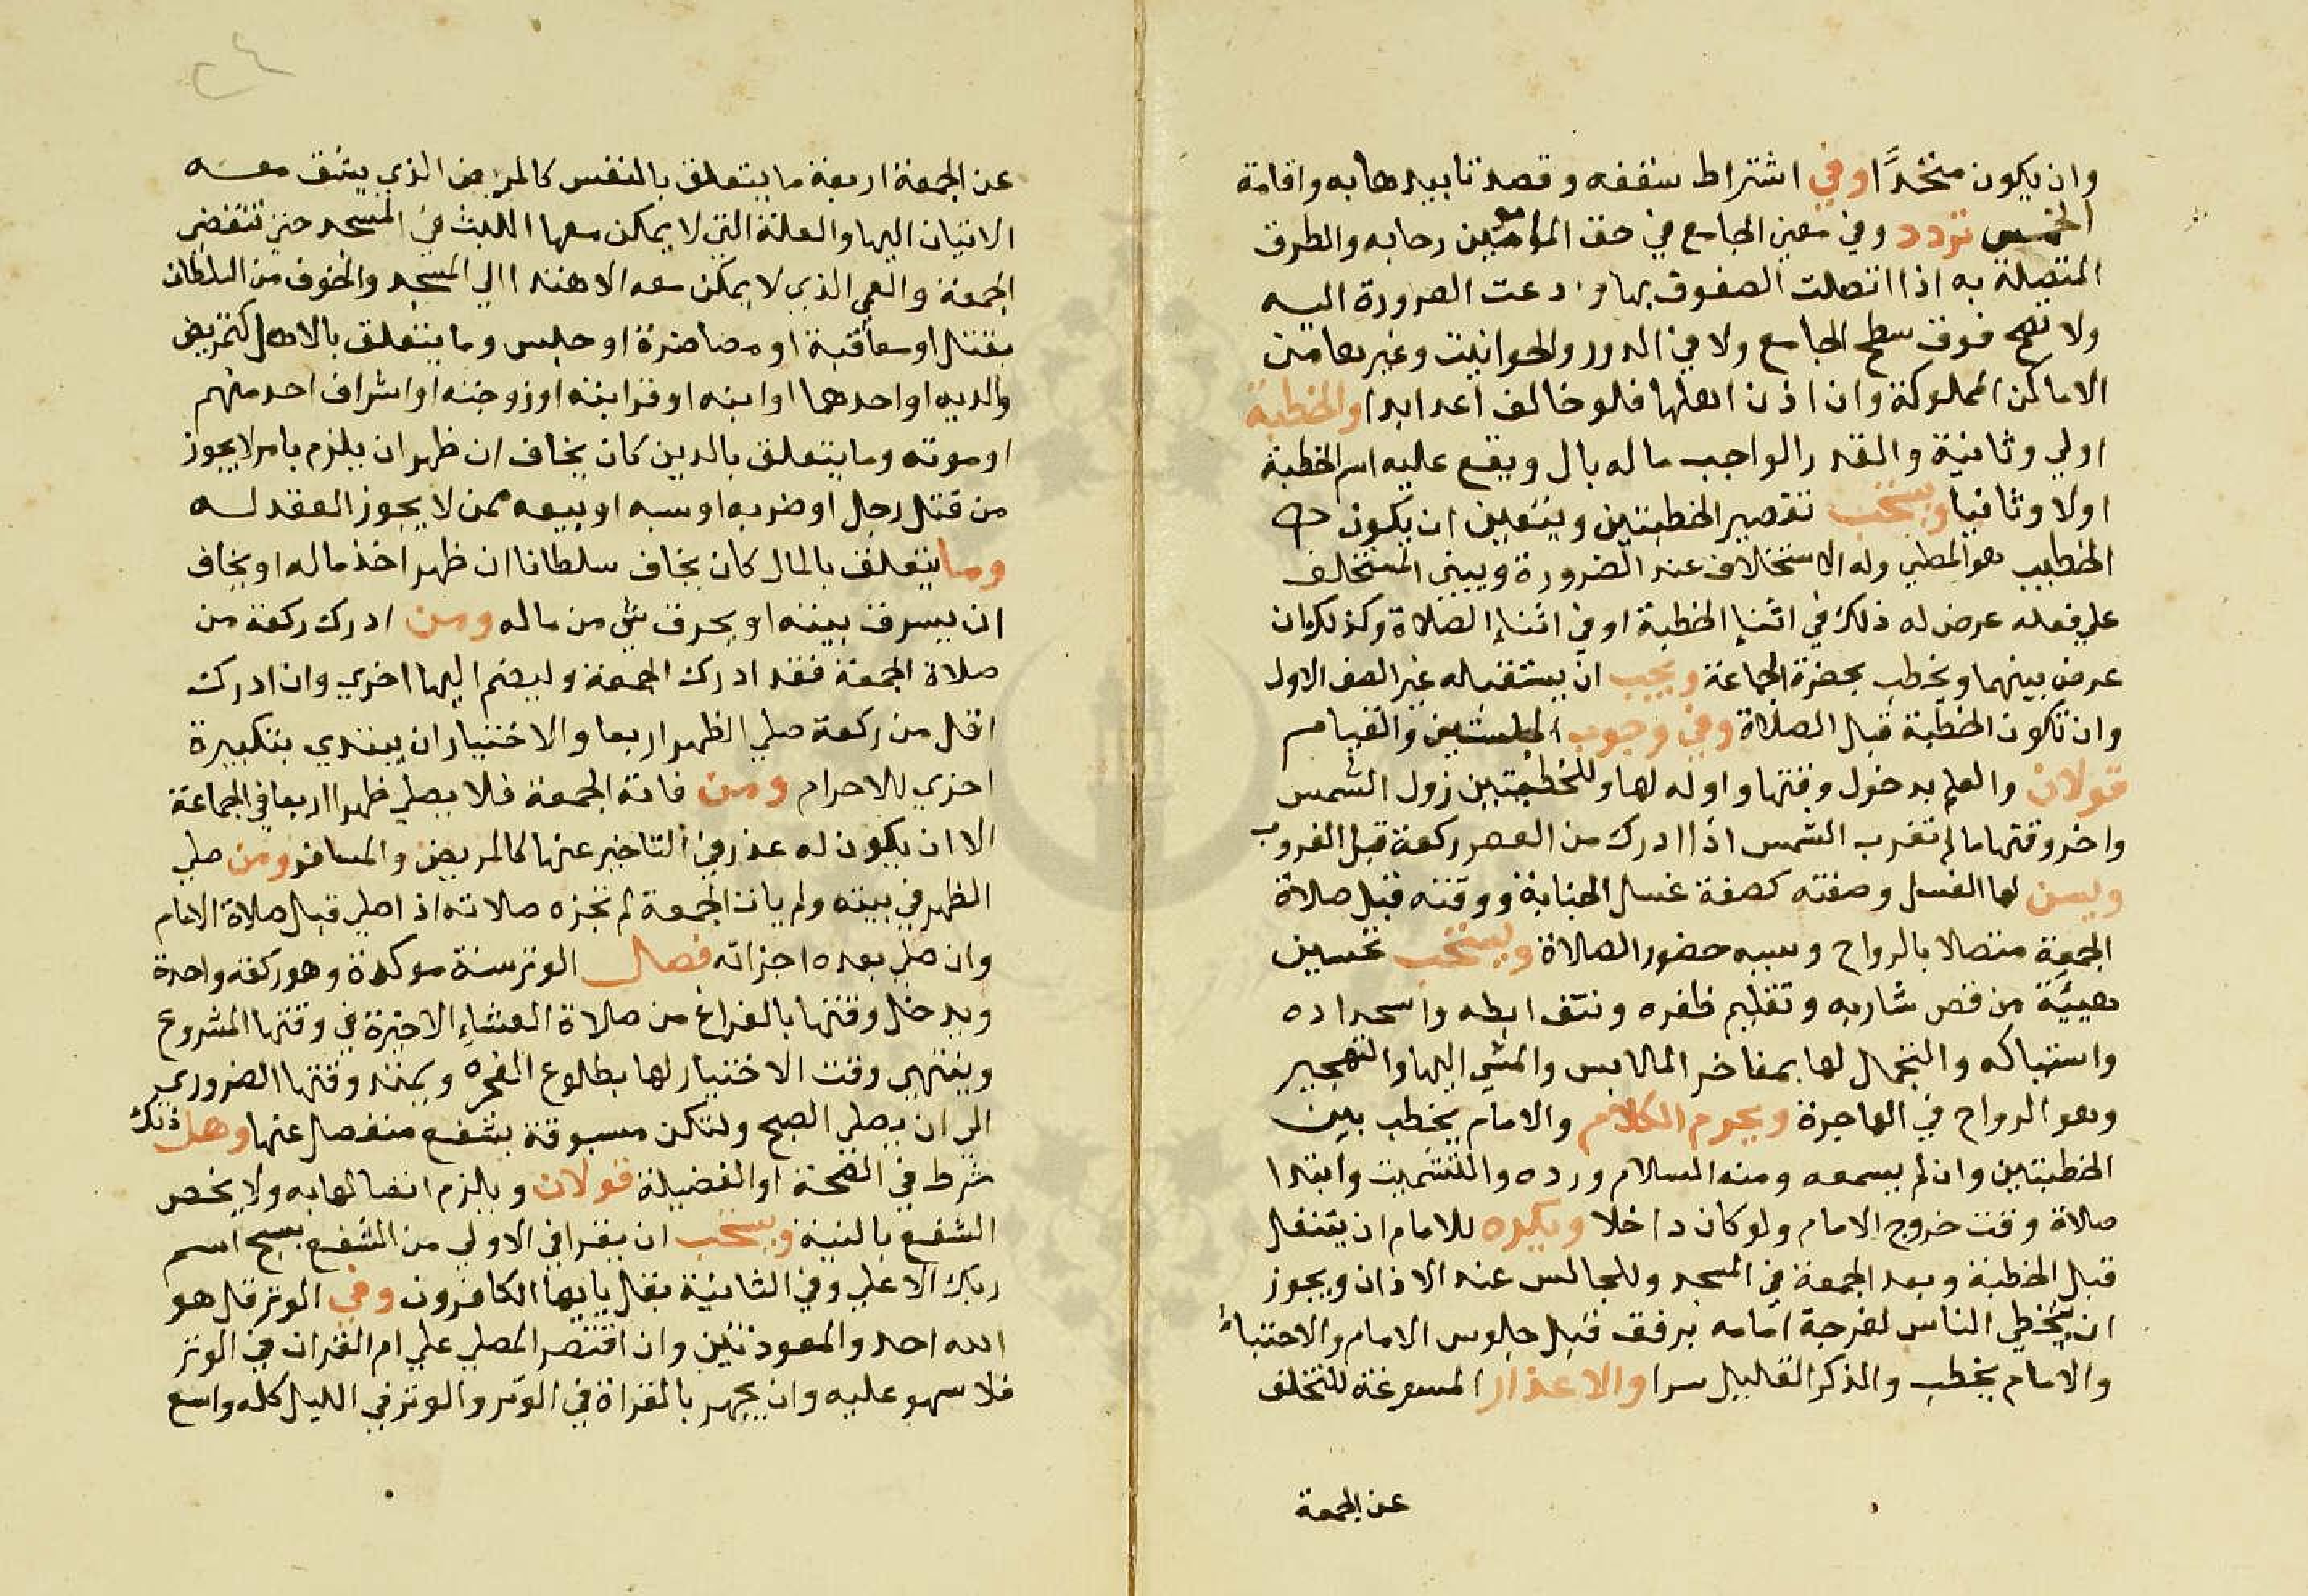 وان يكون متحدًا وفي اشتراط سقفه وقصد تابيدها به واقامة
الخمس تردد وفي معنى الجامع في حق المامومين رحابه والطرق
المتصلة به اذا اتصلت الصفوف بها ودعت الضرورة اليه
ولا تصح فوق سطح الجامع ولا في الدور والحوانيت وغيرها من
الاماكن المملوكة وان اذن اهلها فلو خالف اعاد ابدا والخطبة
اولي وثانية والقدر الواجب ماله بال ويقع عليه اسم الخطبة
اولا وثانيا ويستحب تقصير الخطبتين ويتعين ان يكون
الخطيب هو المصلي وله الاستخلاف عند الضرورة ويبني المستخلف
علي فعله عرض له ذلك في اثناء الخطبة او في اثناء الصلاة وكذلك ان
عرض بينهما ويخطب بحضرة الجماعة ويجب ان يستقباله غير الصف الاول
وان تكون الخطبة قبل الصلاة وفي وجوب الجلستين والقيام
قولان والعلم بدخول وقتها واوله لها وللخطبتين زول الشمس
واخر وقتها ما لم تغرب الشمس اذا ادرك من العصر ركعة قبل الغروب
ويسن لها الغسل وصفته كصفة غسل الجنابة ووقته قبل صلاة
الجمعة متصلا بالرواح وسببه حضور الصلاة ويستحب تحسين
هيئية من قص شاربه وتقليم ظفره ونتف ابطه واسحداده
واستياكه والتجمل لها بمفاخر الملابس والمشي اليها والتهجير
وهو الرواح في الهاجرة ويحرم الكلام والامام يخطب بين
الخطبتين وان لم يسمعه ومنه السلام ورده والتشميت وابتدا
صلاة وقت خروج الامام ولو كان داخلا ويكره للامام ان يتنفل
قبل الخطبة وبعد الجمعة في المسجد وللجالس عند الاذان ويجوز
ان يتخطي الناس لفرجة امامه برفق قبل جلوس الامام والاحتباء
والامام يخطب والذكر القليل سرا والاعذار المسوغة للتخلف
عن الجمعة
٢٤
عن الجمعة اربعة ما يتعلق بالنفس كالمريض الذي يشق معه
الاتيان اليها والعلة التي لا يمكن معها اللبث في المسجد حتي تنقضي
الجمعة والعمي الذي لا يمكن معه الاهتدا الي المسجد والخوف من السلطان
بقتل او معاقبة او مصاضرة او حبس وما يتعلق بالاهل كتمريض
والديه او احدهما او ابنه او قرابته او زوجته او اشراف احد منهم
او موته وما يتعلق بالدين كان يخاف ان ظهر ان يلزم بامر لا يجوز
من قتل رجل او ضربه او سبه او بيعه ممن لا يجوز العقد له
وما يتعلق بالمال كان يخاف سلطانا ان ظهر اخذ ماله او يخاف
ان يسرق بيته او يحرق شي من ماله ومن ادرك ركعة من
صلاة الجمعة فقد ادرك الجمعة وليضم اليها اخري وان ادرك
اقل من ركعة صلي الظهر اربعا والاختيار ان يبتدي بتكبيرة
اخري للاحرام ومن فاتة الجمعة فلا يصلي ظهرا اربعا في الجماعة
الا ان يكون له عذر في التاخير عنها كالمريض والمسافر ومن صلي
الظهر في بيته ولم يات الجمعة لم تجزه صلاته اذا صلي قبل صلاة الامام
وان صلي بعده اجزاته فصل الوتر سنة موكدة وهو ركعة واحدة
ويدخل وقتها بالفراغ من صلاة العشاء الاخيرة في وقتها المشروع
وينتهي وقت الاختيار لها بطلوع الفجر ويمتد وقتها الضروري
الي ان يصلي الصبح ولتكن مسبوقة بشفع منفصل عنها وهل ذلك
شرط في الصحة او الفضيلة قولان ويلزم اتصالها به ولا يخص
الشفع بالنية ويستحب ان يقرا في الاولي من الشفع بسبح اسم
ربك الاعلي وفي الثانية بقل يايها الكافرون وفي الوتر قل هو
الله احد والمعوذتين وان اقتصر المصلي علي ام القران في الوتر
فلا سهو عليه وان يجهر بالقراة في الوتر والوتر في الليل كله واسع